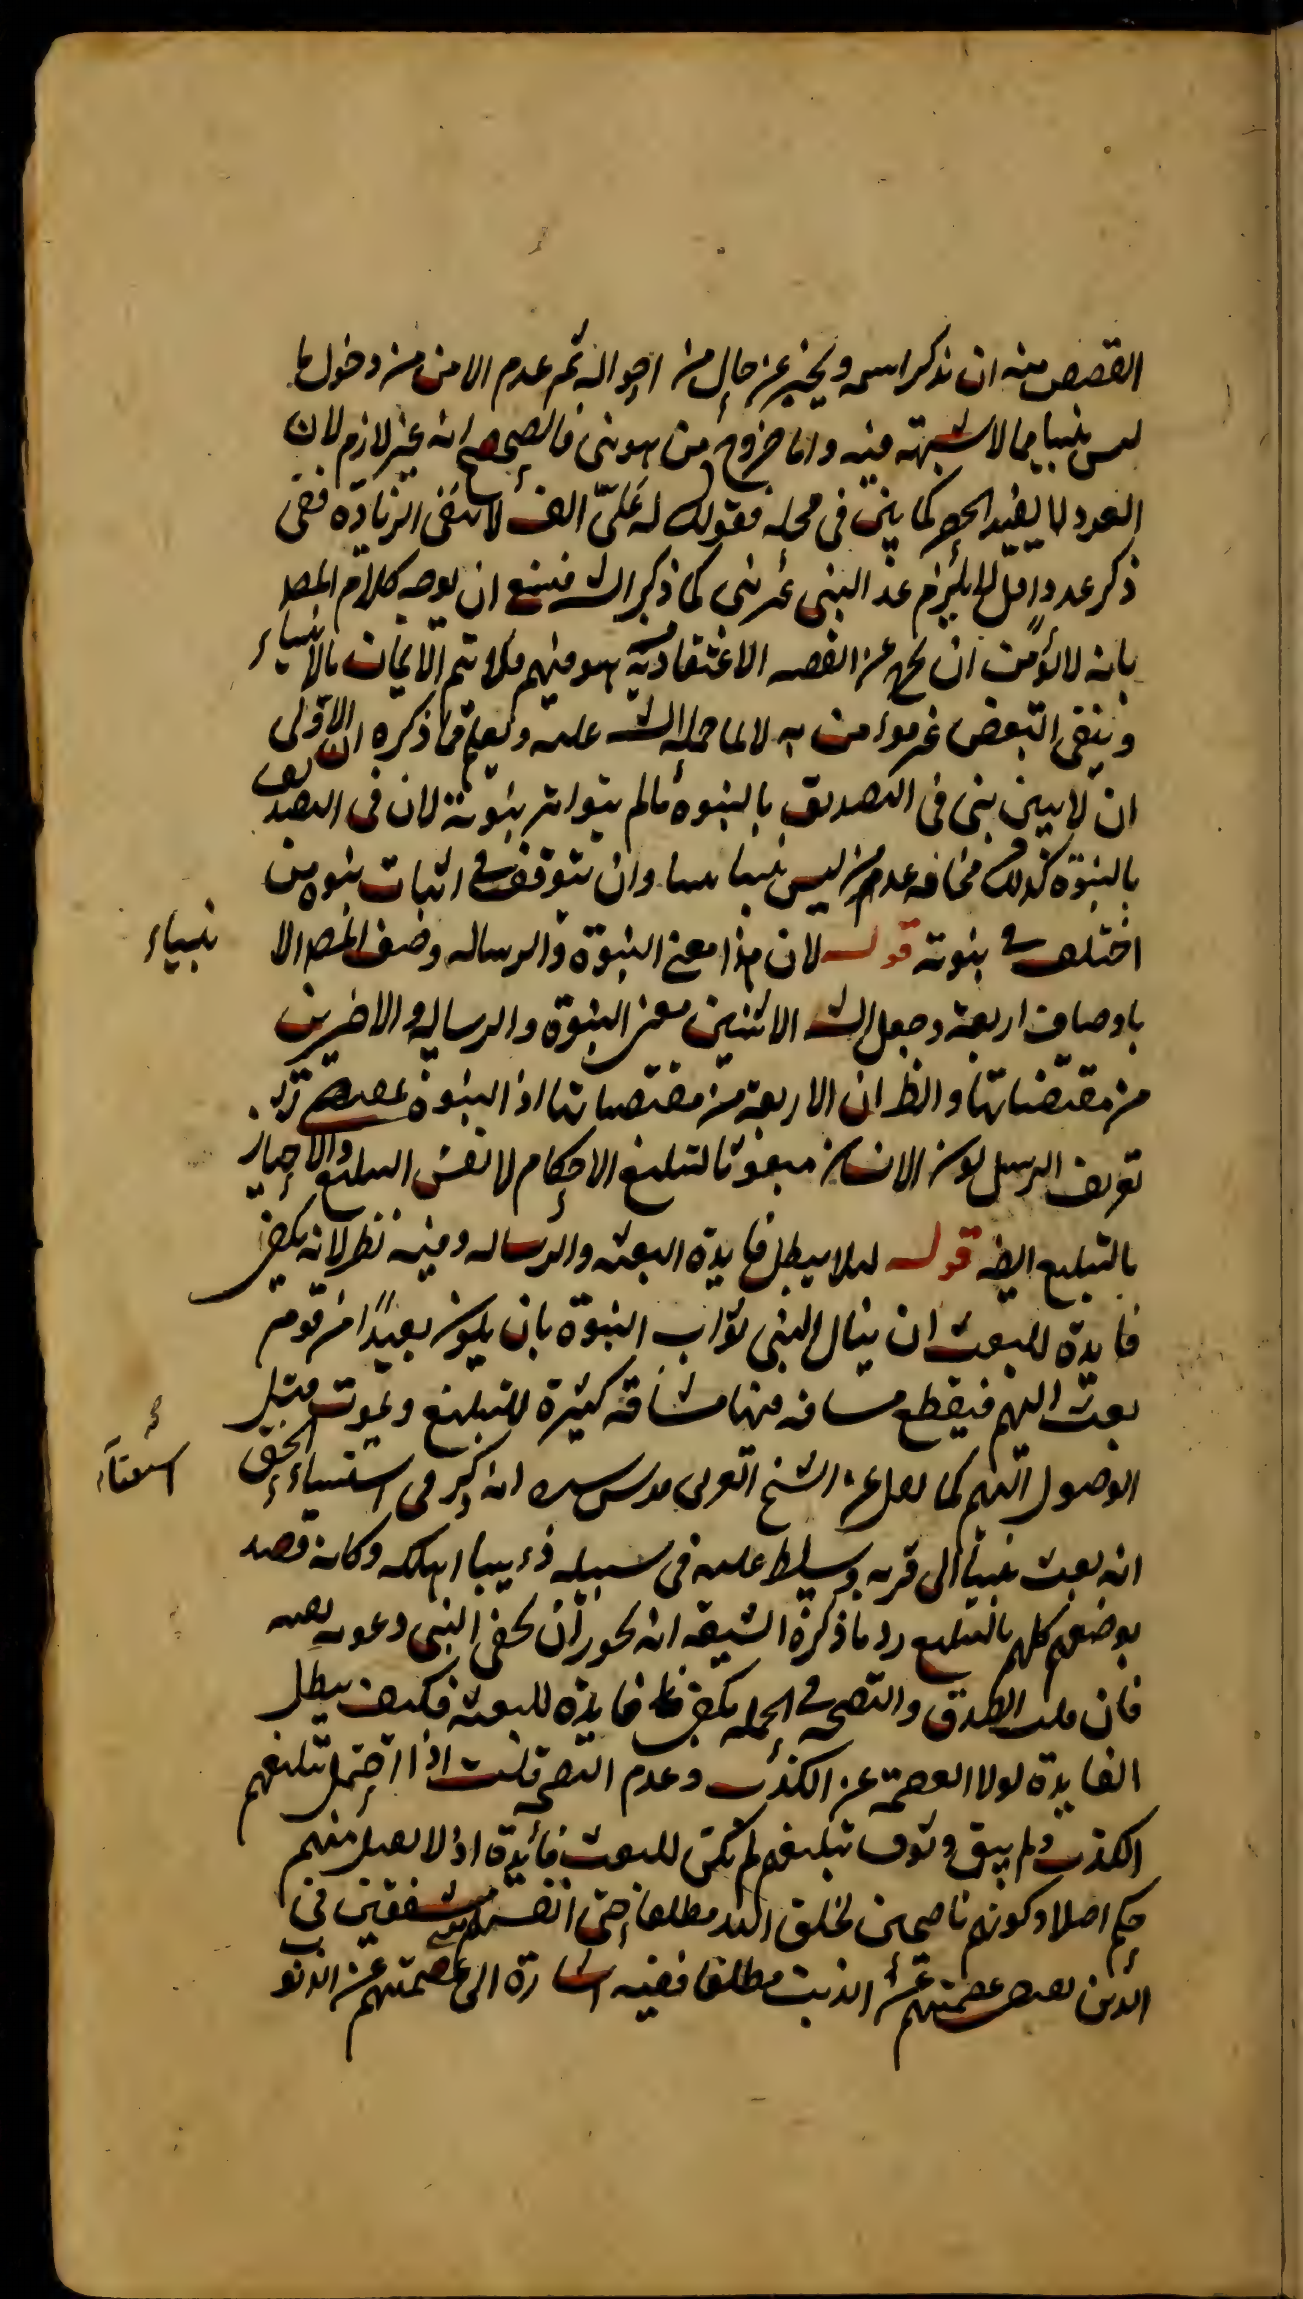 القصص منه ان نذكر اسمه ويخبر عن حال من احواله ثم عدم الامن من دخول ما
ليس بنبيا مما لا شبهة فيه واما خروج من هو نبى فالصحيح انه غير لازم لان
العدد لا يفيد الحصر كما بين فى محله فقولك له على الف لا ينفى الزيادة ففى
ذكر عدد اقل لا يلزم عد النبى غير نبى كما ذكر الش فينبغ ان يوجه كلام المص
بانه لا يؤمن ان يخرج عن القصه الاعتقادية هو منهم فلا يتم الايمان بالانبياء
وينفى التبعض غير مؤمن به لا لما حمله الش عليه ويعلم مما ذكره ان الاولى
ان لا يبين نبى فى التصديق بالنبوة ما لم يتواتر نبوته لان فى التصديق
بالنبوة كذلك مخافة عدم من ليس نبيا نبيا وان يتوقف فى اثبات نبوة من
اختلف فى نبوته قوله لان هذا معنى النبوة والرسالة وصف المص الا نبياء
باوصاف اربعة وجعل الش الاثنين معنى النبوة والرسالة والاخرين
من مقتضياتها والظ ان الاربعة من مقتضياتها اذ النبوة
تعريف الرسل كون الانسان مبعوثا لتبليغ الاحكام لا نفس التبليغ والاخبار
بالتبليغ ايضه قوله لئلا يبطل فايدة البعثة والرسالة وفيه نظر لانه يكفى
فايدة للبعث ان ينال النبى ثواب النبوة بان يكون بعيدا من قوم
بعث اليهم فيقطع مسافة فيها مشاقة كثيرة للتبليغ ويموت قبل
الوصول اليهم كما نقل عن الشيخ قدس سره انه ذكر فى الحق
انه بعث نبيا الى قرية وسلط عليه فى سبيله ذئيبا اهلكه وكانه قصد
بوصفهم كلهم بالتبليغ رد ما ذكره الشيعة انه يجوز ان يخفى النبى دعوته
فان قلت الصدق والنصح فى الجملة يكفى فايدة للبعثة فكيف يبطل
الفايدة لولا العصمة عن الكذب وعدم النصح قلت اذا احتمل تبليغهم
الكذب ولم يبق وثوق تبليغهم لم تكن للبعث فائدة اذ لا يقبل منهم
حكم اصلا وكونهم ناصحين لخلق الله مطلقا حتى انفسهم مشفقين فى
الدين يقتضى عصمتهم عن الذنب مطلقا ففيه اشارة الى عصمتهم عن الذنو